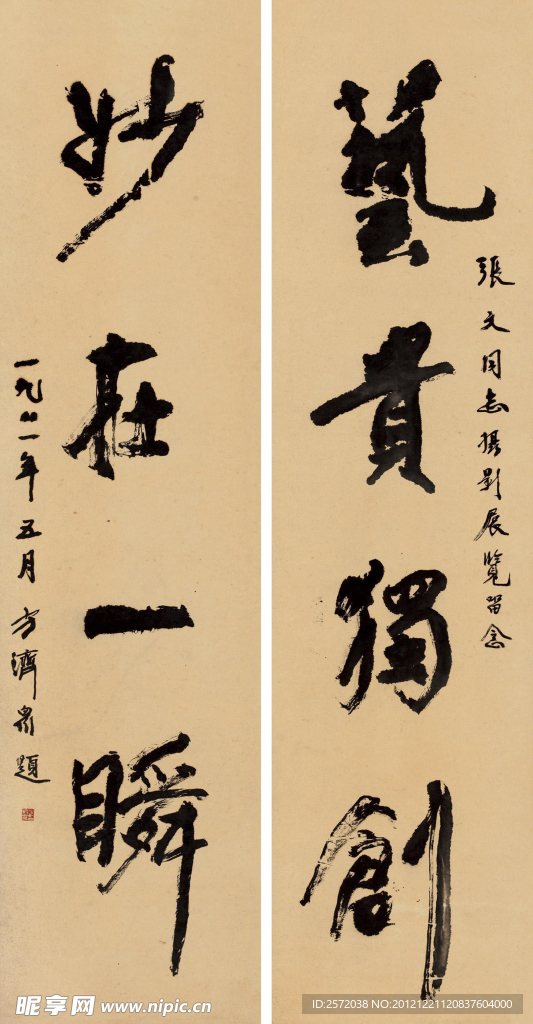 張文同志攝影展覽留念
藝貴獨創
妙在一瞬
一九八一年五月 方濟眾題
昵享网 www.nipic.cn
ID:2572038 NO:20121221120837604000